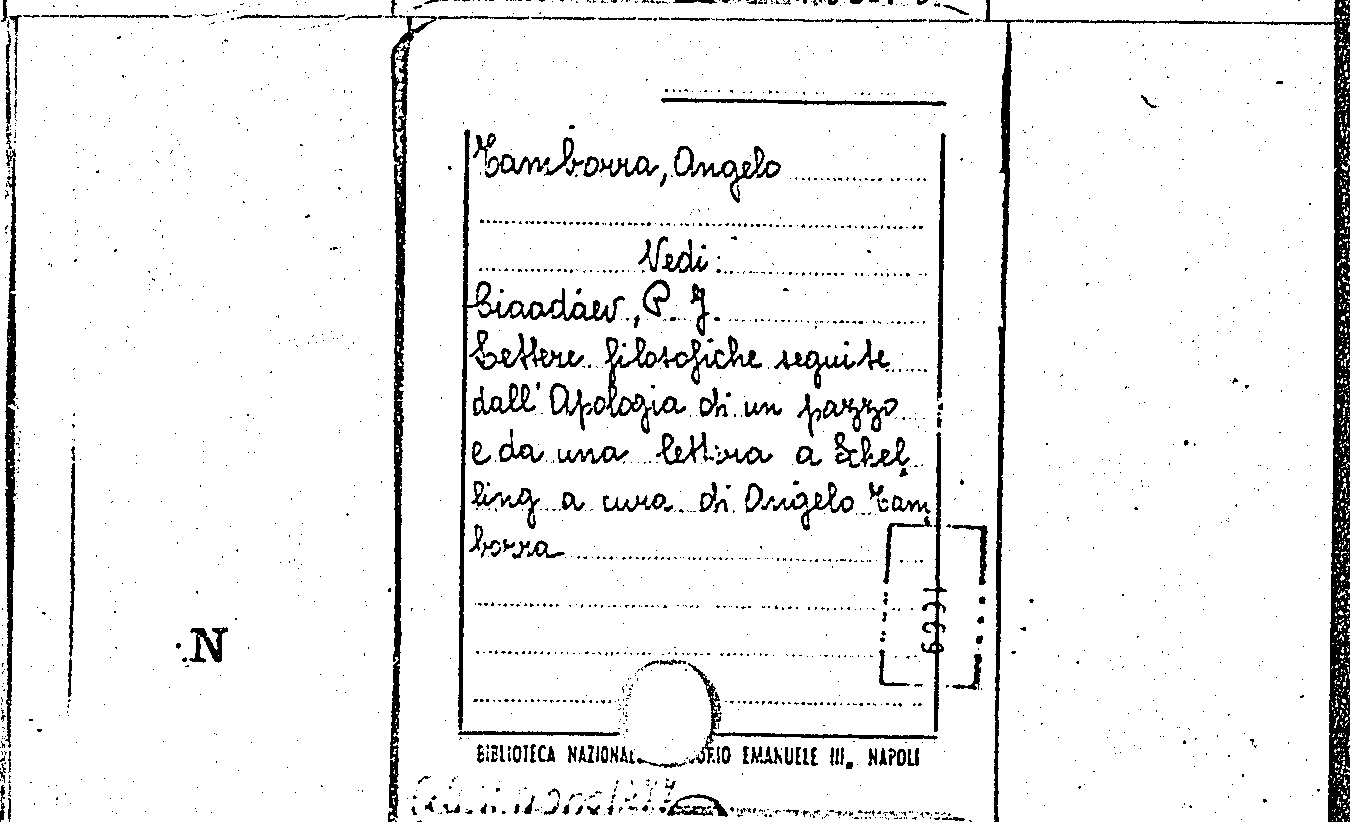 Tamborra, Angelo
Vedi:
Ciaadáev, P. J.
Lettere filosofiche seguite
dall'Apologia di un pazzo
e da una lettera a Schel
ling a cura di Angelo Tam
borra
N
BIBLIOTECA EMANUELE III, NAPOLI